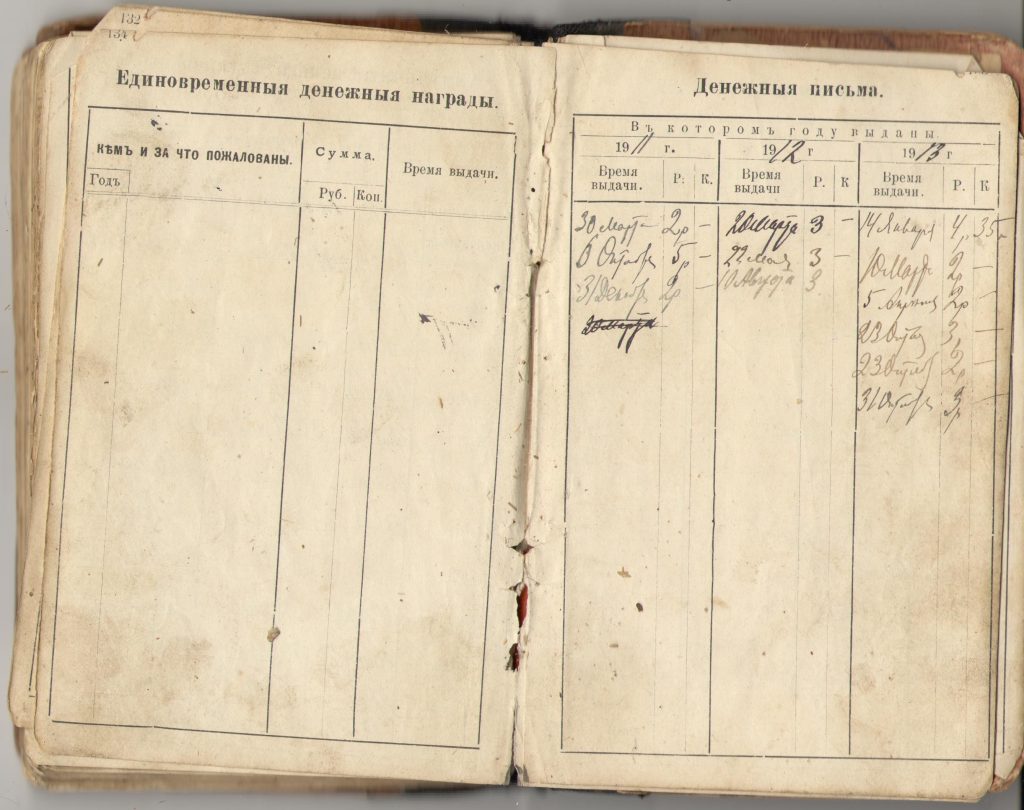 132
134
Единовременныя денежныя награды.
КѢМЪ И ЗА ЧТО ПОЖАЛОВАНЫ.
Сумма.
Время выдачи.
Годъ
Руб.
Коп.
Денежныя письма.
Въ которомъ году выданы.
1911 г.
1912 г
1913 г
Время выдачи.
Р.
К.
Время выдачи
Р.
К
Время выдачи.
Р.
К
30 Марта 2р — 20 Марта 3 — 14 Января 4р 35
6 Октября 5р — 22 Мая 3 — 10 Марта 2р —
31 Декабр 2р — 10 Августа 3
5 2р —
20 Марта
23 Октяб 3р —
23 Октяб 2р —
31 Октября 3р —